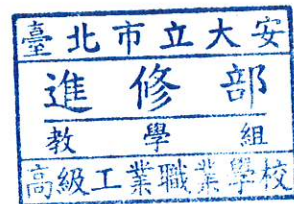 臺北市立大安
進修部
教學組
高級工業職業學校